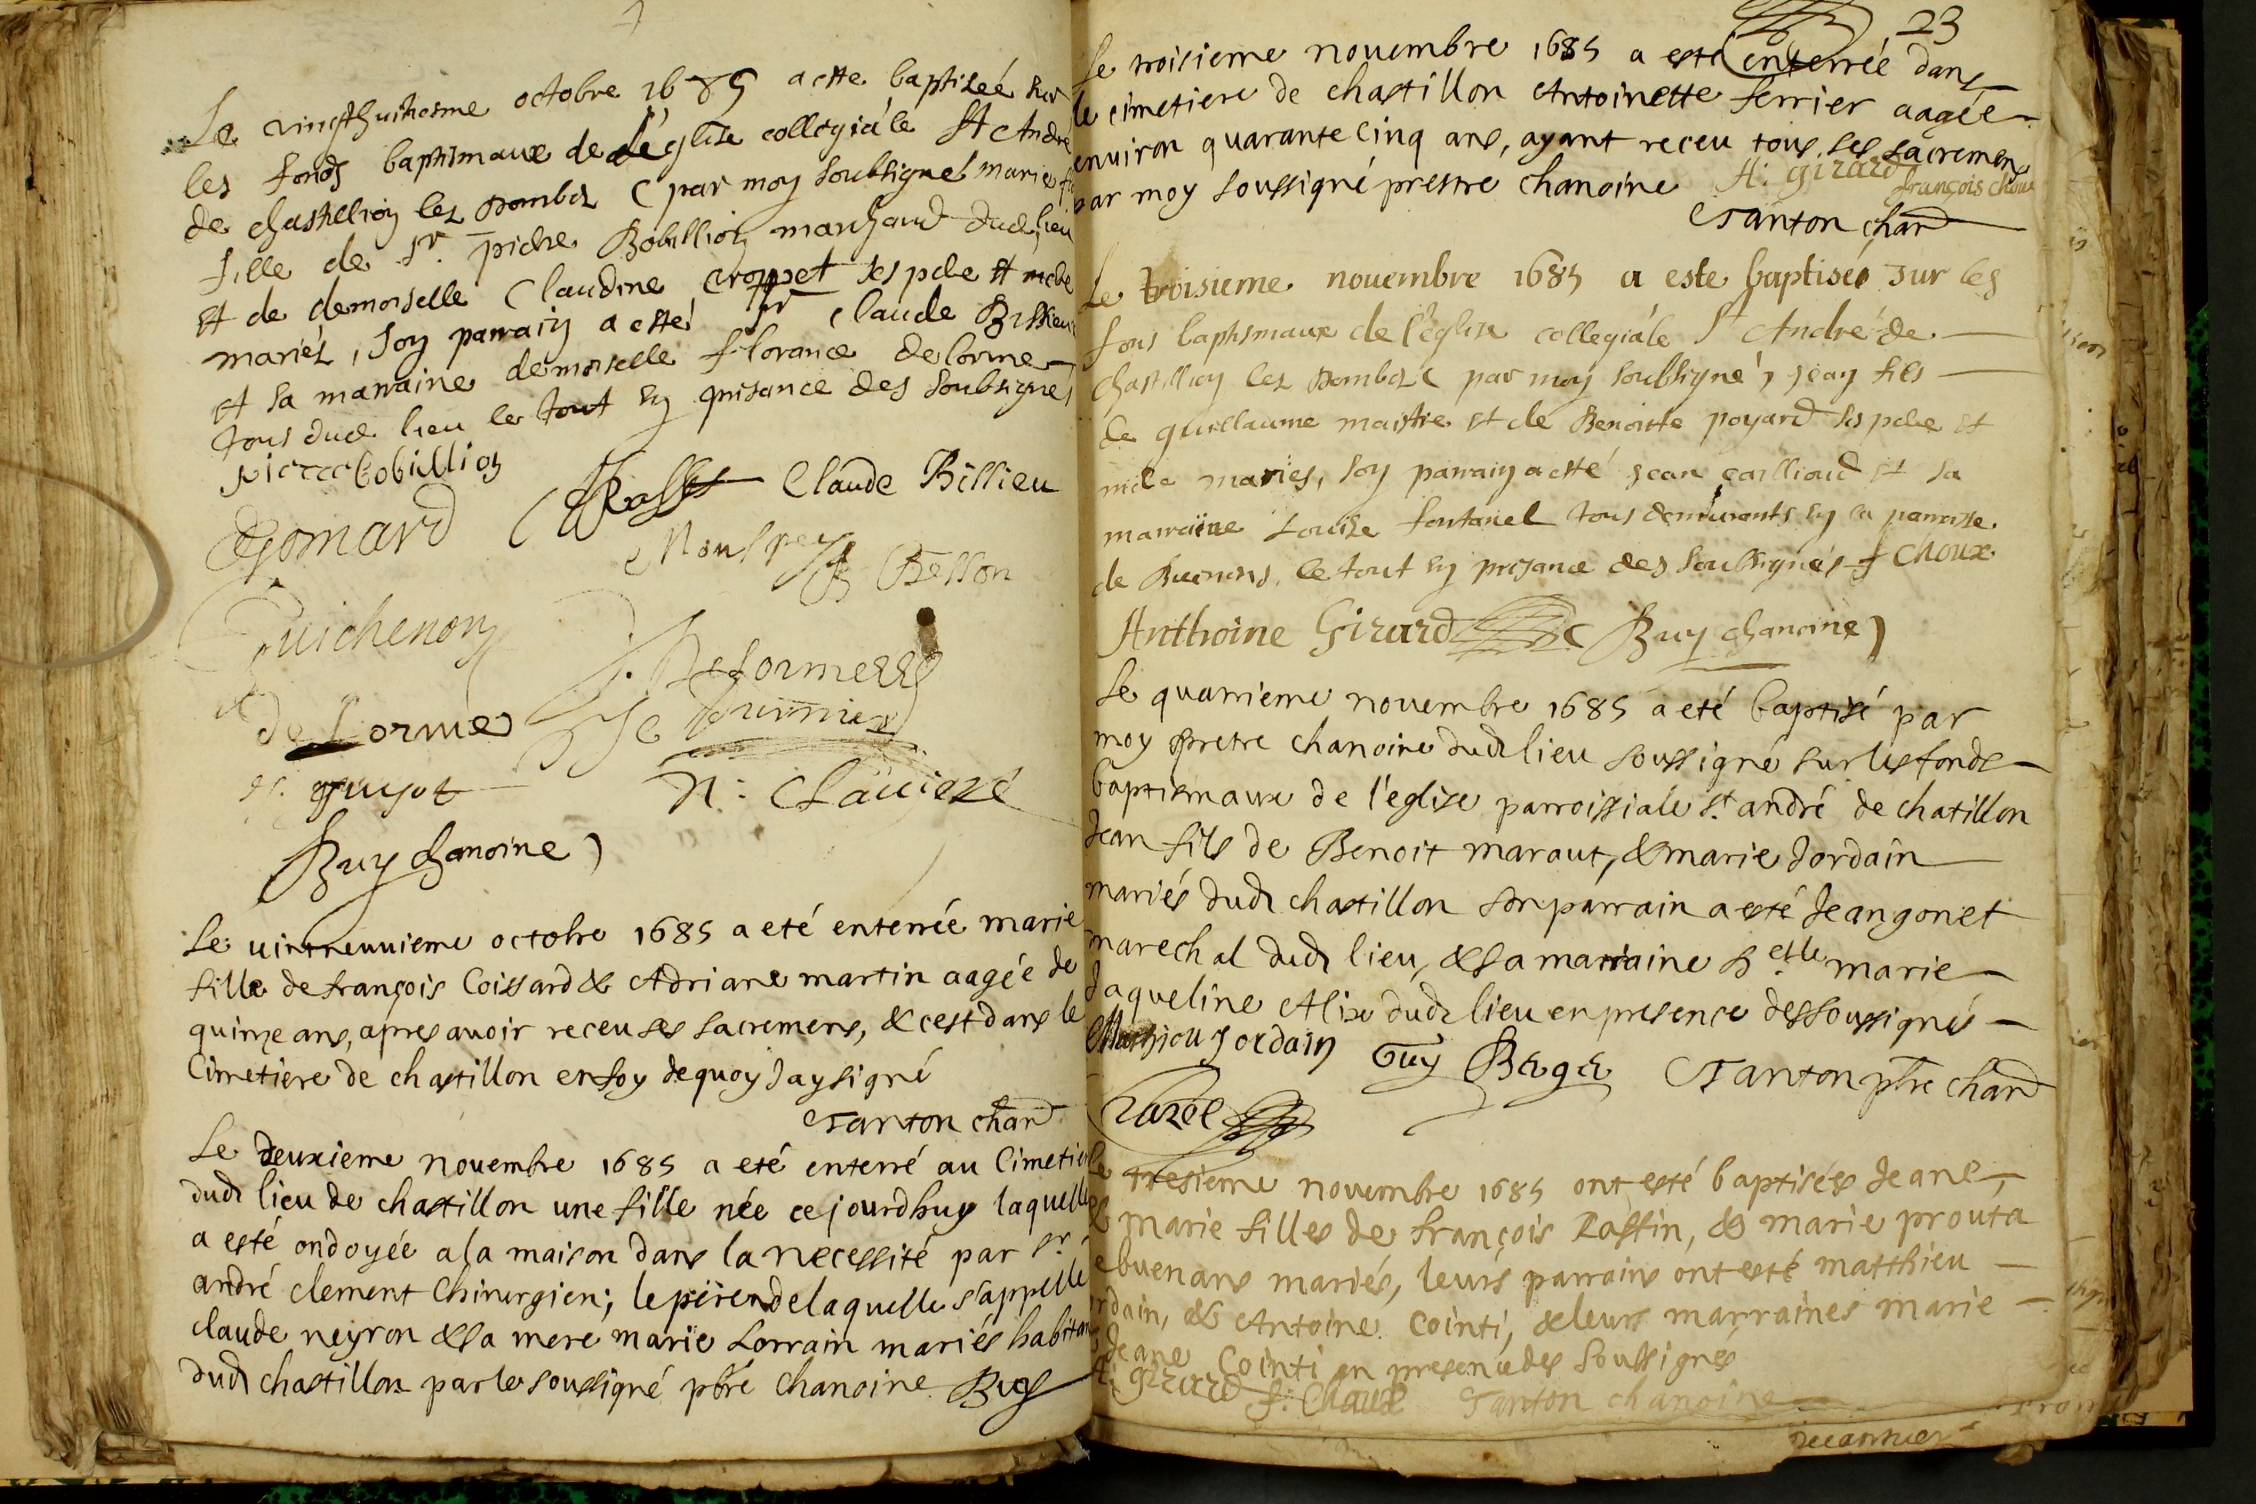 Le vingthuitiesme octobre 1685 a esté baptiseé sur
les fonds baptismaux de l'église collegiale St André
de chastillion les dombes par moy soubsigné marie
fille de Sr. pierre Bobillion marchand dud lieu
et de demoiselle Claudine Croppet ses pere et mere
mariés, son parrain a esté Sr Claude Billieu
et sa marraine demoiselle florance delorme
tous dud lieu le tout en presance des soubsignes
pierre bobillion
Gomard Claude Billieu
Besson
Guichenon
de Lorme
guyot n: Claviere
Buy chanoine
Le vintneuvieme octobre 1685 a eté enterrée marie
fille de françois Coissard & Adriane martin aagée de
quinze ans, apres avoir receu ses sacremens, & c'est dans le
Cimetiere de chastillon en foy de quoy J'ay signé
Tanton chan
Le deuxieme novembre 1685 a eté enterré au Cimetie
dud lieu de chastillon une fille née ce jourdhuy laquelle
a esté ondoyée a la maison dans la necessité par Sr.
andré clement Chirurgien; le pere de laquelle s'appelle
claude neyron & sa mere marie Lorrain mariés habitans
dud chastillon par le soussigné pbre chanoine Buy
23
Le troisieme novembre 1685 a esté enterrée dans
le cimetiere de chastillon Antoinette ferrier aagée
environ quarante cinq ans, ayant receu tous ses sacremens
par moy soussigné prestre chanoine A: girard
françois choux
Tanton chan
Le troisieme novembre 1685 a este baptisé sur les
fons baptismaux de l'église collegiale St André de
chastillion les dombes par moy soubsigné, jean fils
de guillaume maistre et de Benoiste poyard ses pere et
mere mariés, son parrain a esté jean cailliaud et sa
marraine Louise fontanel tous demeurants en la parroisse
de Buenens, le tout en presance des soubsignés f choux
Anthoine Girard Buy chanoine
Le quatrieme novembre 1685 a eté baptisé par
moy pretre chanoine dud lieu soussigné sur les fonds
baptismaux de l'eglise parroissiale St. andré de chatillon
Jean fils de Benoit maraut, & marie Jordain
mariés dud chastillon son parrain a esté Jean gonet
marechal dud lieu, & sa marraine delle marie
Jaqueline Alix dud lieu en presence des soussignés
Mathieu Jordain Guy Berger Tanton pbre chan
Cuzel
Le tresieme novembre 1685 ont esté baptisées Jeane,
& marie filles de françois Raffin, & marie prouta
de buenans mariés, leurs parrains ont esté matthieu
Jordain, & Antoine Cointi, & leurs marraines marie
& Jeane Cointi en presence des soussignés
A: girard f: Choux Tanton chanoine